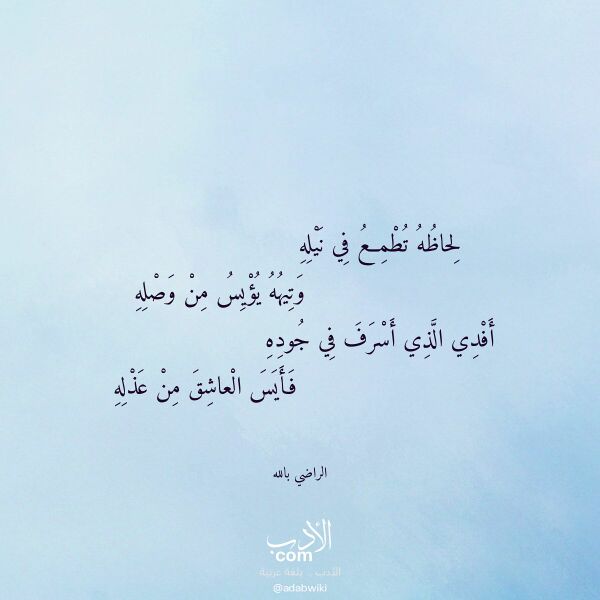 لِحاظُهُ تُطْمِعُ فِي نَيْلِهِ
وَتِيهُهُ يُؤْيِسُ مِنْ وَصْلِهِ
أَفْدِي الَّذِي أَسْرَفَ فِي جُودِهِ
فَأَيَسَ الْعاشِقَ مِنْ عَذْلِهِ
الراضي بالله
الأدب
com
الأدب .. بلغة عربية
@adabwiki